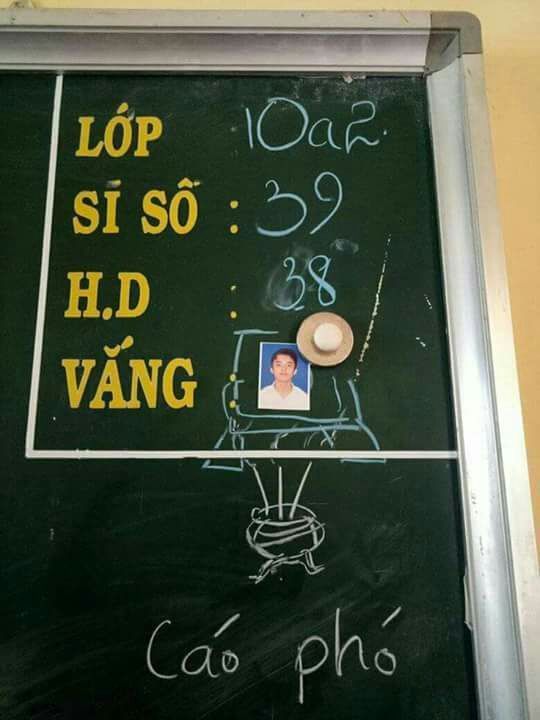 LỚP 10a2.
SĨ SỐ : 39
H.D : 38
VẮNG :
Cáo phó